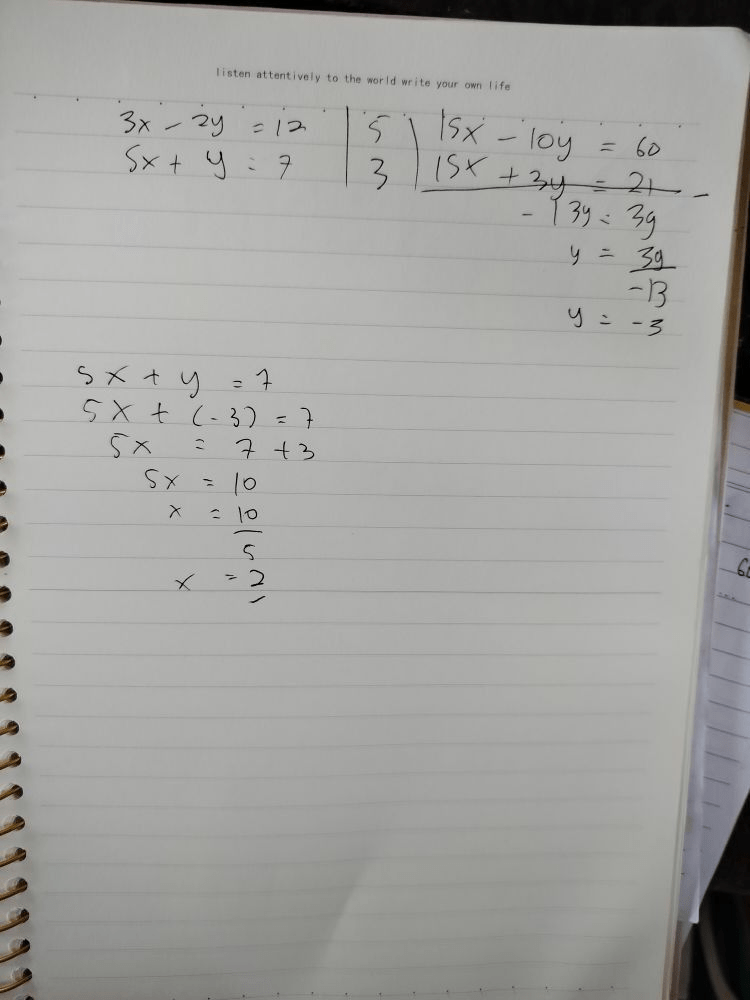 listen attentively to the world write your own life
3x - 2y = 12 | 5 | 15x - 10y = 60
5x + y = 7 | 3 | 15x + 3y = 21 -
- 13y = 39
y = 39
-13
y = -3
5x + y = 7
5x + (-3) = 7
5x = 7 + 3
5x = 10
x = 10
5
x = 2